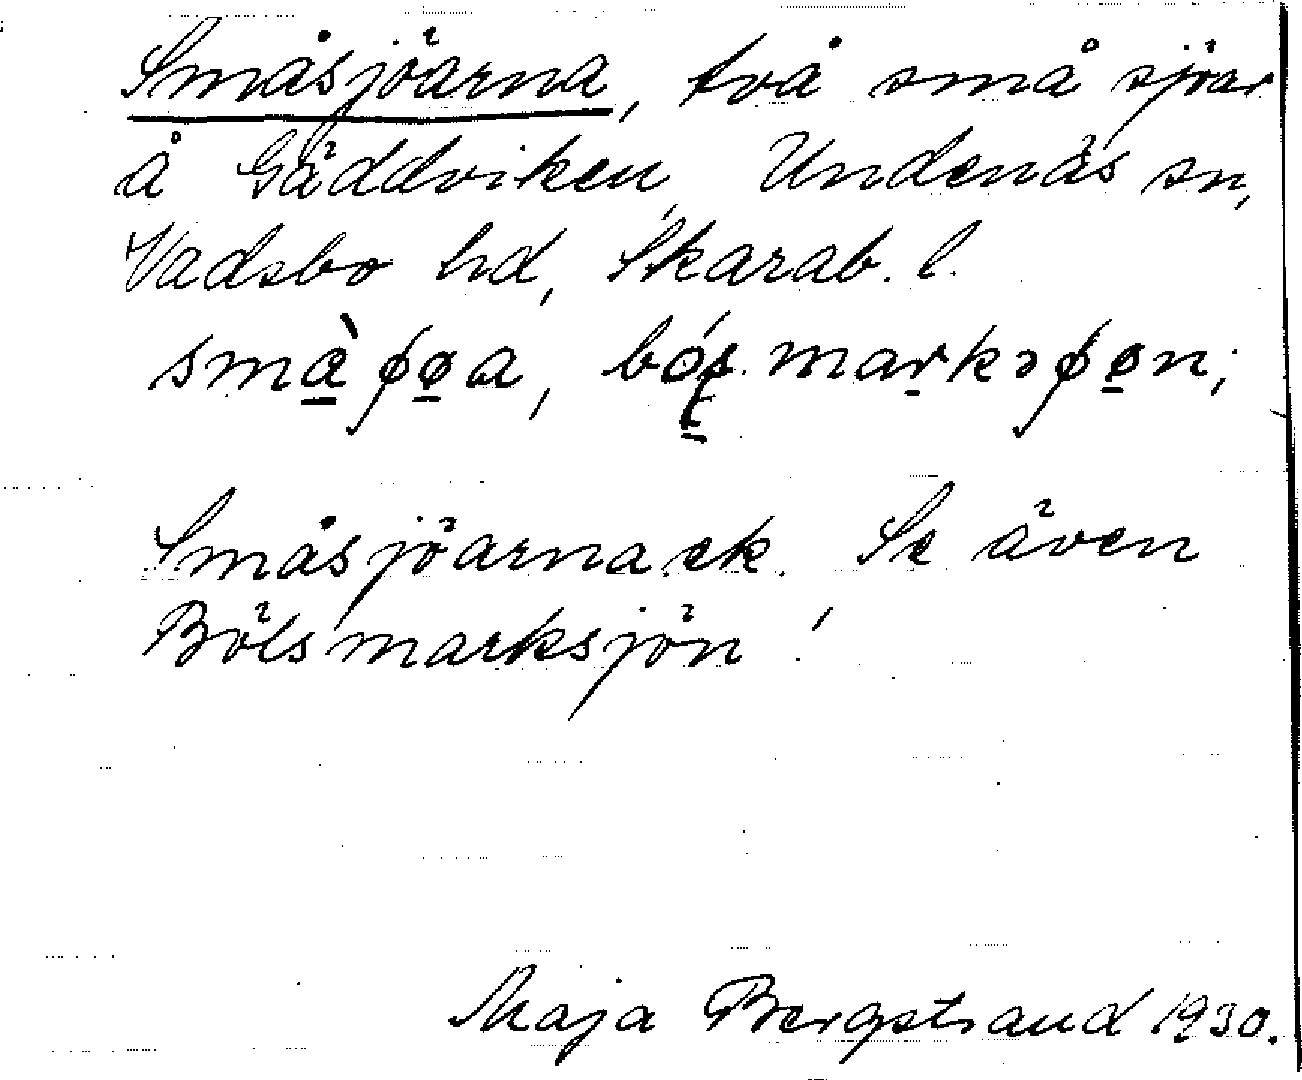 Småsjöarna, två små sjöar
å Gäddviken, Undenäs sn,
Vadsbo hd, Skarab. l.
Småsjöarna ek. Se även
Bölsmarksjön!
Maja Bergstrand 1930.